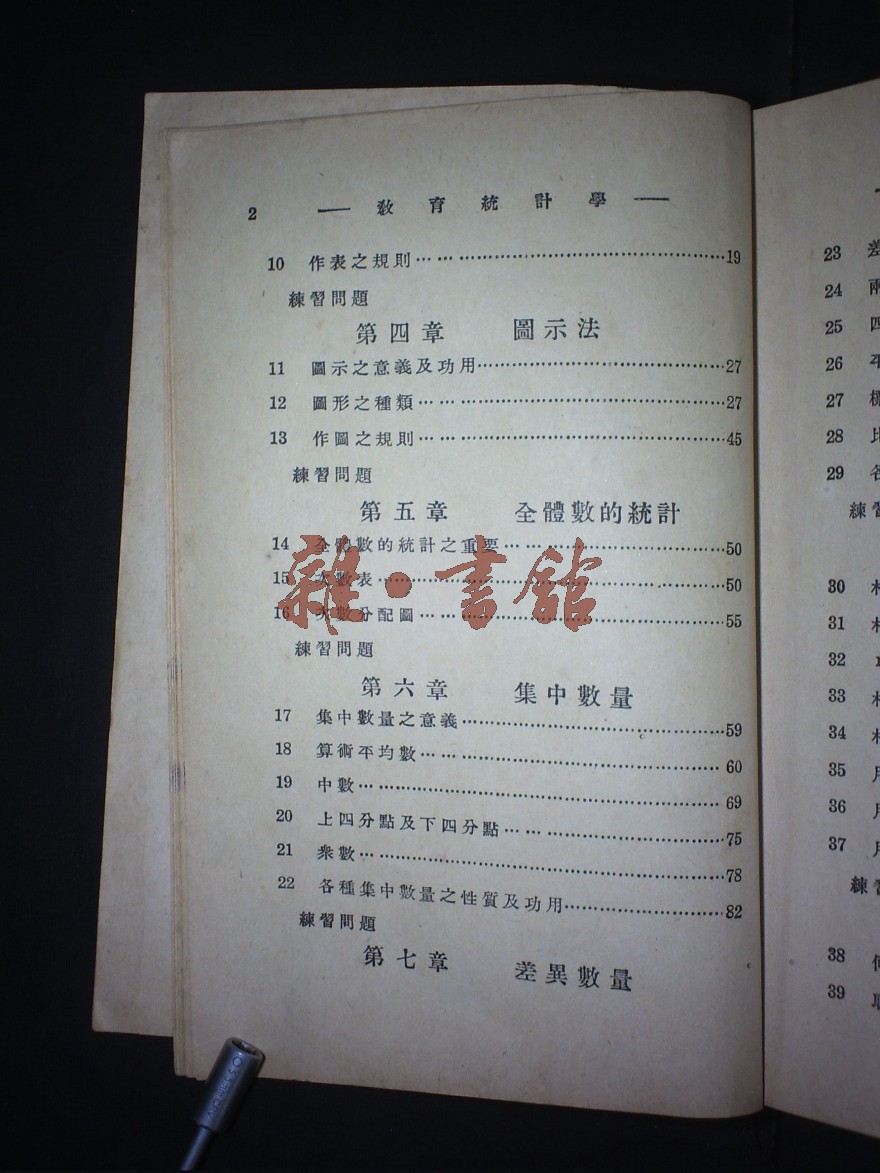 2 — 教育統計學 —
10 作表之規則………19
練習問題
第四章 圖示法
11 圖示之意義及功用………27
12 圖形之種類………27
13 作圖之規則………45
練習問題
第五章 全體數的統計
14 全體數的統計之重要………50
15 次數表………50
16 次數分配圖………55
練習問題
第六章 集中數量
17 集中數量之意義………59
18 算術平均數………60
19 中數………69
20 上四分點及下四分點………75
21 衆數………78
22 各種集中數量之性質及功用………82
練習問題
第七章 差異數量
雜·書館
23 差
24 兩
25 四
26 平
27
28 比
29 各
練習
30
31
32
33
34
35
36
37
練
38
39